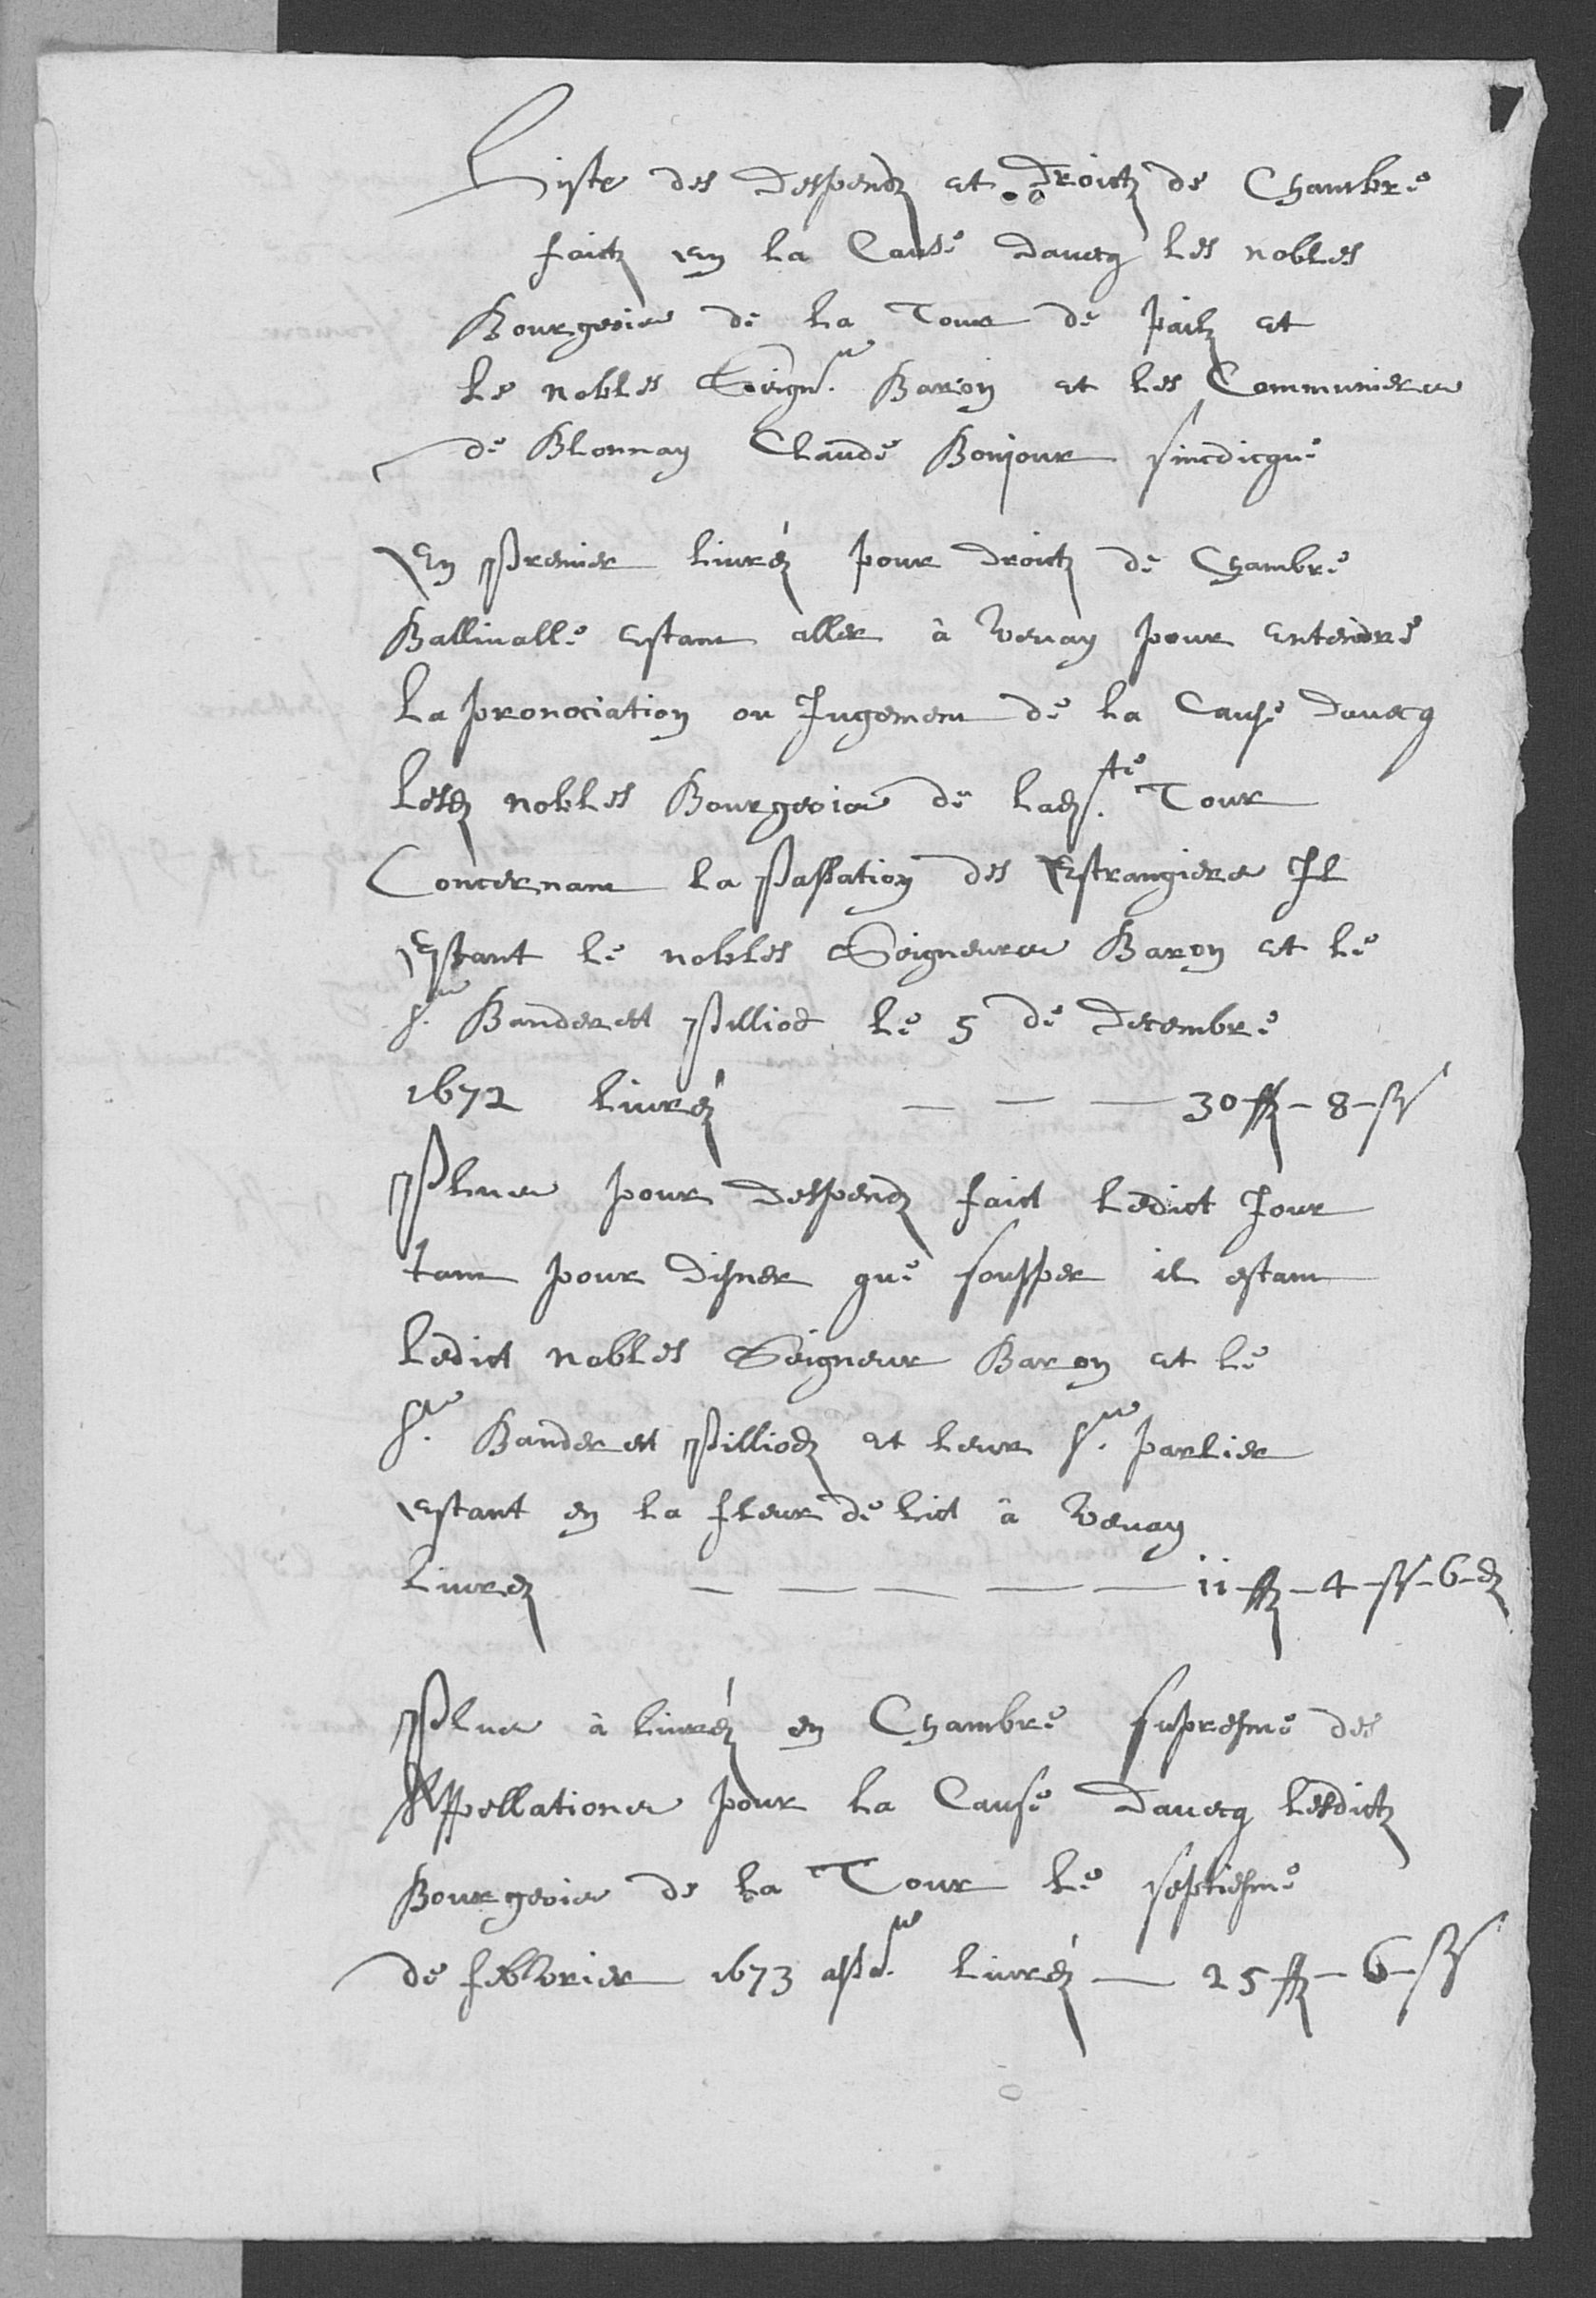 Liste des despendz et droictz de Chambre
faictz en la Cause davecq les nobles
Bourgeois de la Tour de Peilz et
le nobles Seignr. Baron et les Communiers
de Blonnay Claude Bonjour sincdicque
En Premier livréz pour droictz de Chambre
Ballivalle estant aller à Vevay pour entendre
la pronociation ou Jugement de la Cause davecq
lesdz nobles Bourgeois de ladste. Tour
Concernant la Passation des Estrangiers Il
Estant le nobles Seigneurs Baron et le
sr. Banderet Pilliod le 5 de Decembre
1672 livréz — — — 30 ffz – 8 – ss
Plus pour despendz faict ledict Jour
tant pour disner que soupper il estant
ledict nobles Seigneur Baron et le
sr. Banderet Pilliodz et leur sr. parlier
estant en la fleur de lict à Vevay
livréz — — — — — 11 ffz – 4 – ss – 6 – dz
Plus à livréz en Chambre supresme des
Appellations pour la Cause davecq lesdictz
Bourgeois de la Tour le septiesme
de febvrier 1673 livréz — 25 ffz – 6 – ss